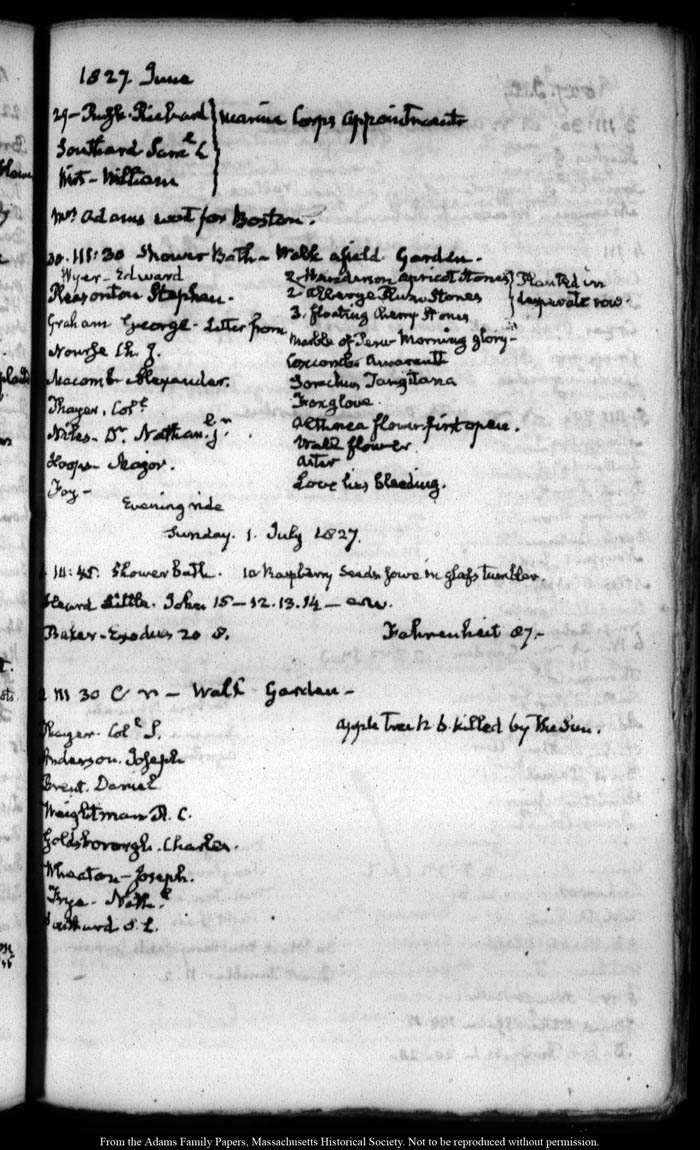 1827 June
29 - Rush. Richard
Southard Sam.l L
Wirt - William
Marine Corps Appointments
Mrs Adams went for Boston
30. III:30 Shower Bath - Walk afield Garden.
Wyer - Edward
Pleasonton Stephen.
Graham George - Letter from
Nourse Ch. J.
Macomb Alexander.
Thayer. Col.l
Niles - Dr. Nathan.l Jr.
Hoops - Major.
Foy -
Evening ride
2 Henderson apricot Stones
2 alberge Plum Stones
3. floating cherry Stones
Planted in
desperate row.
Marble of Peru Morning glory
Coxcombs Amarant
Sonchus Tangitana
Foxglove.
Althaea flower first open.
Wall flower
Aster
Love lies bleeding.
Sunday. 1. July 1827.
III:45. Shower Bath. 10 Raspberry Seeds sowe in glass tumbler.
Heard Little. John 15 - 12.13.14 -
Baker - Exodus 20 8.
Fahrenheit 87. -
2 III 30 C n - Walk Garden -
Thayer. Col.l S.
Anderson. Joseph
Brent. Daniel
Weightman R. C.
Goldsborough. Charles.
Wheaton - Joseph.
Frye - Nath.l
Southard S. L.
apple tree h b. killed by the Sun.
From the Adams Family Papers, Massachusetts Historical Society. Not to be reproduced without permission.